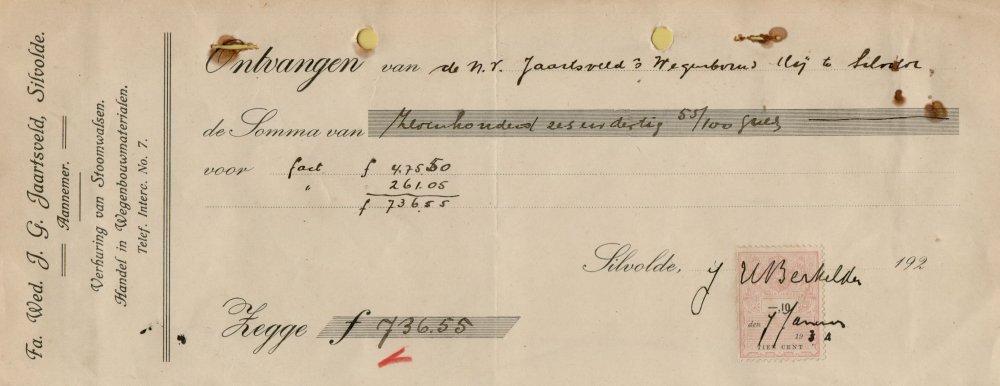 Fa. Wed. J. G. Jaartsveld, Silvolde.
Aannemer.
Verhuring van Stoomwalsen.
Handel in Wegenbouwmaterialen.
Telef. Interc. No. 7.
Ontvangen van de N.V. Jaartsveld's Wegenbouw Mij te Silvolde
de Somma van Zevenhonderd zes en dertig 55/100 guld
voor fact f 475.50
" 261.05
f 736.55
Silvolde, 192
Berkelder
10
den 7 Januari
1934
TIEN CENT
Zegge f 736.55